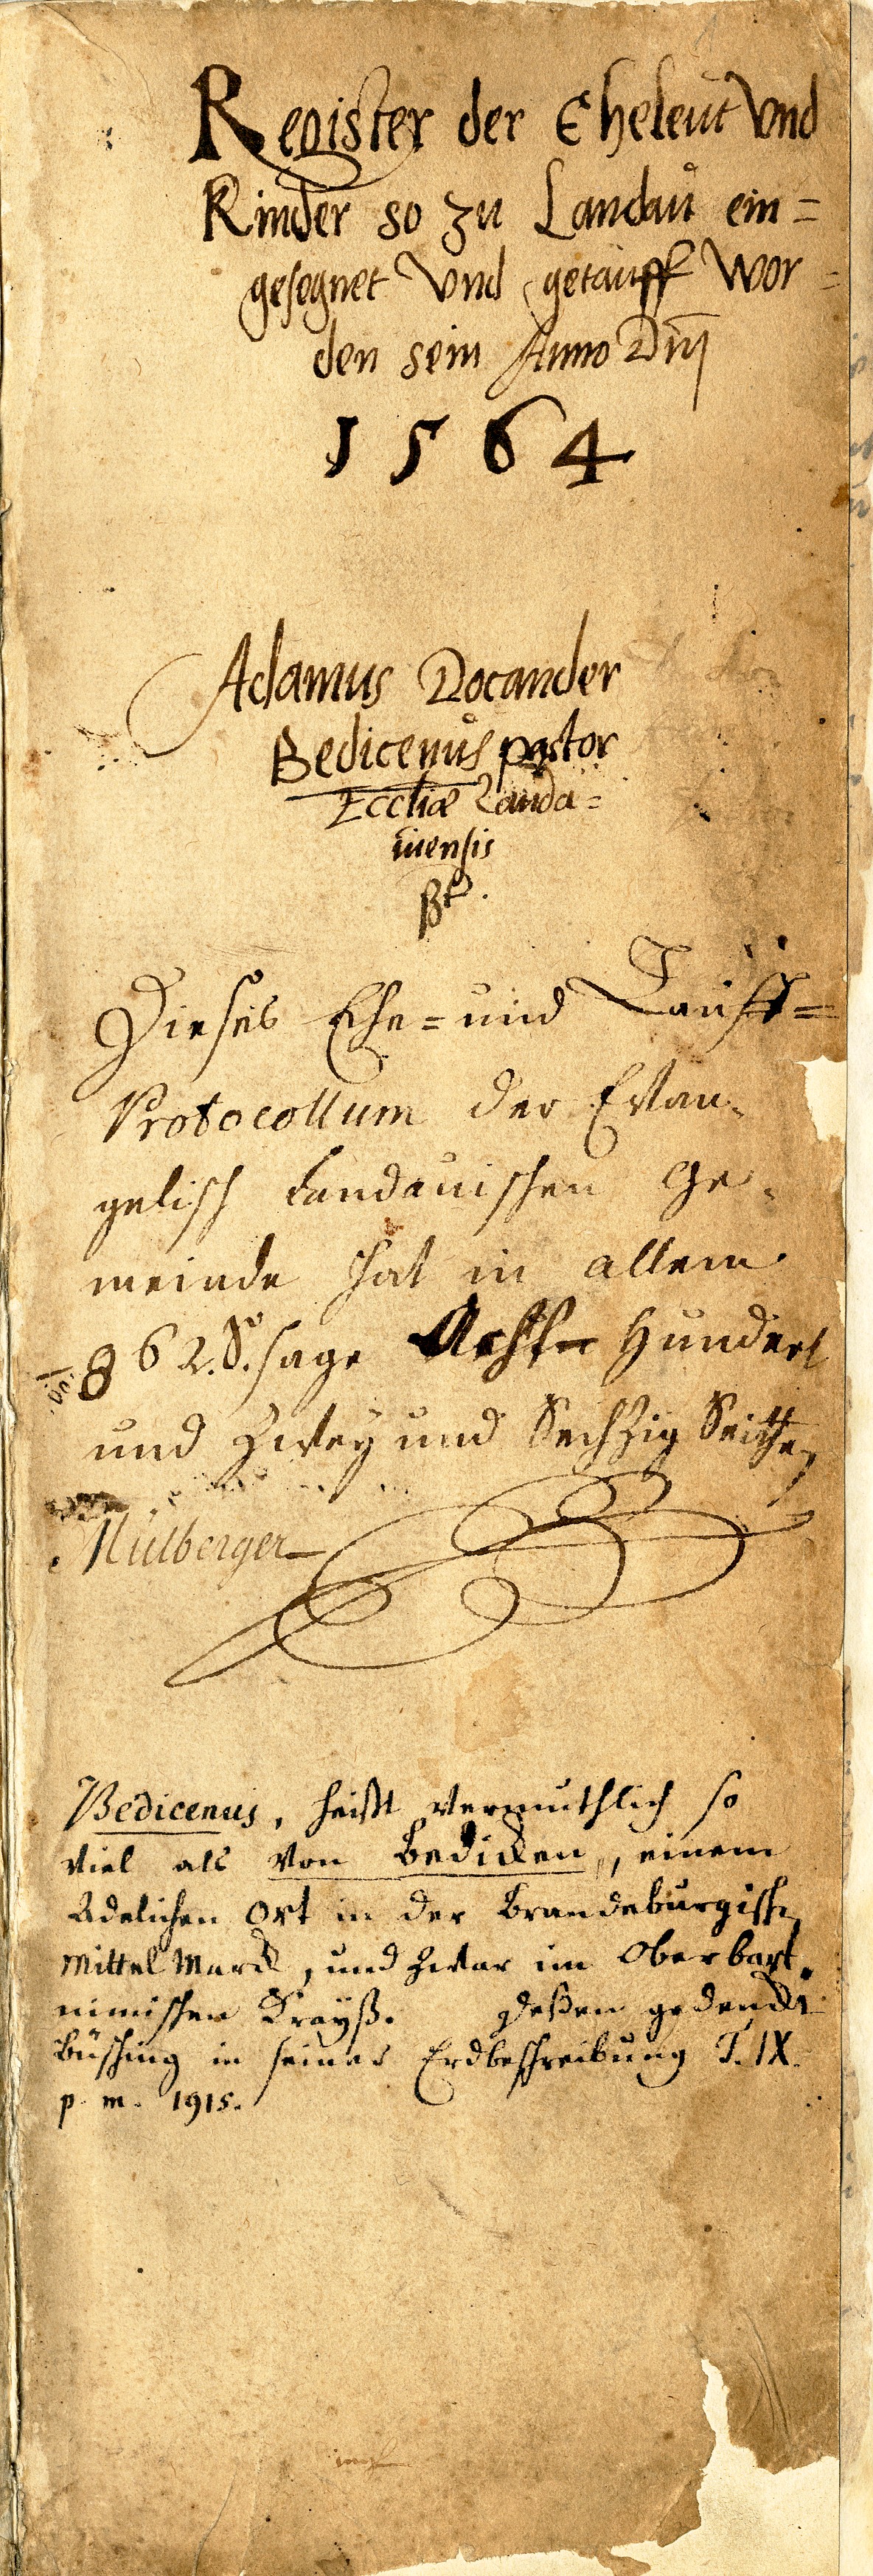 Register der Eheleut Vnd
Kinder so zu Landau ein=
gesegnet Vnd getauff Wor=
den sein Anno Dnj
1564
Adamus Docander
Bedicenus pastor
Eccliæ Landa=
uiensis
Dieses Ehe= und Tauff=
Protocollum der Evan=
gelisch Landauischen Ge=
meinde hat in allem
862. S. sage Acht Hundert
und Zwey und Sechzig Seithen
Mülberger
Bedicenus, heißt vermuthlich so
viel als von Bedicken, einem
Adelichen Ort in der Brandeburgischen
Mittel Marck, und zwar im Oberbart=
nimischen Krayß. Deßen gedenckt
Büsching in seiner Erdbeschreibung T. IX.
p. m. 1915.